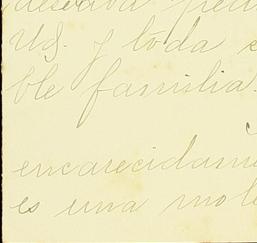 deseaba
Ud. y toda
ble familia.
encarecidam
es una mole